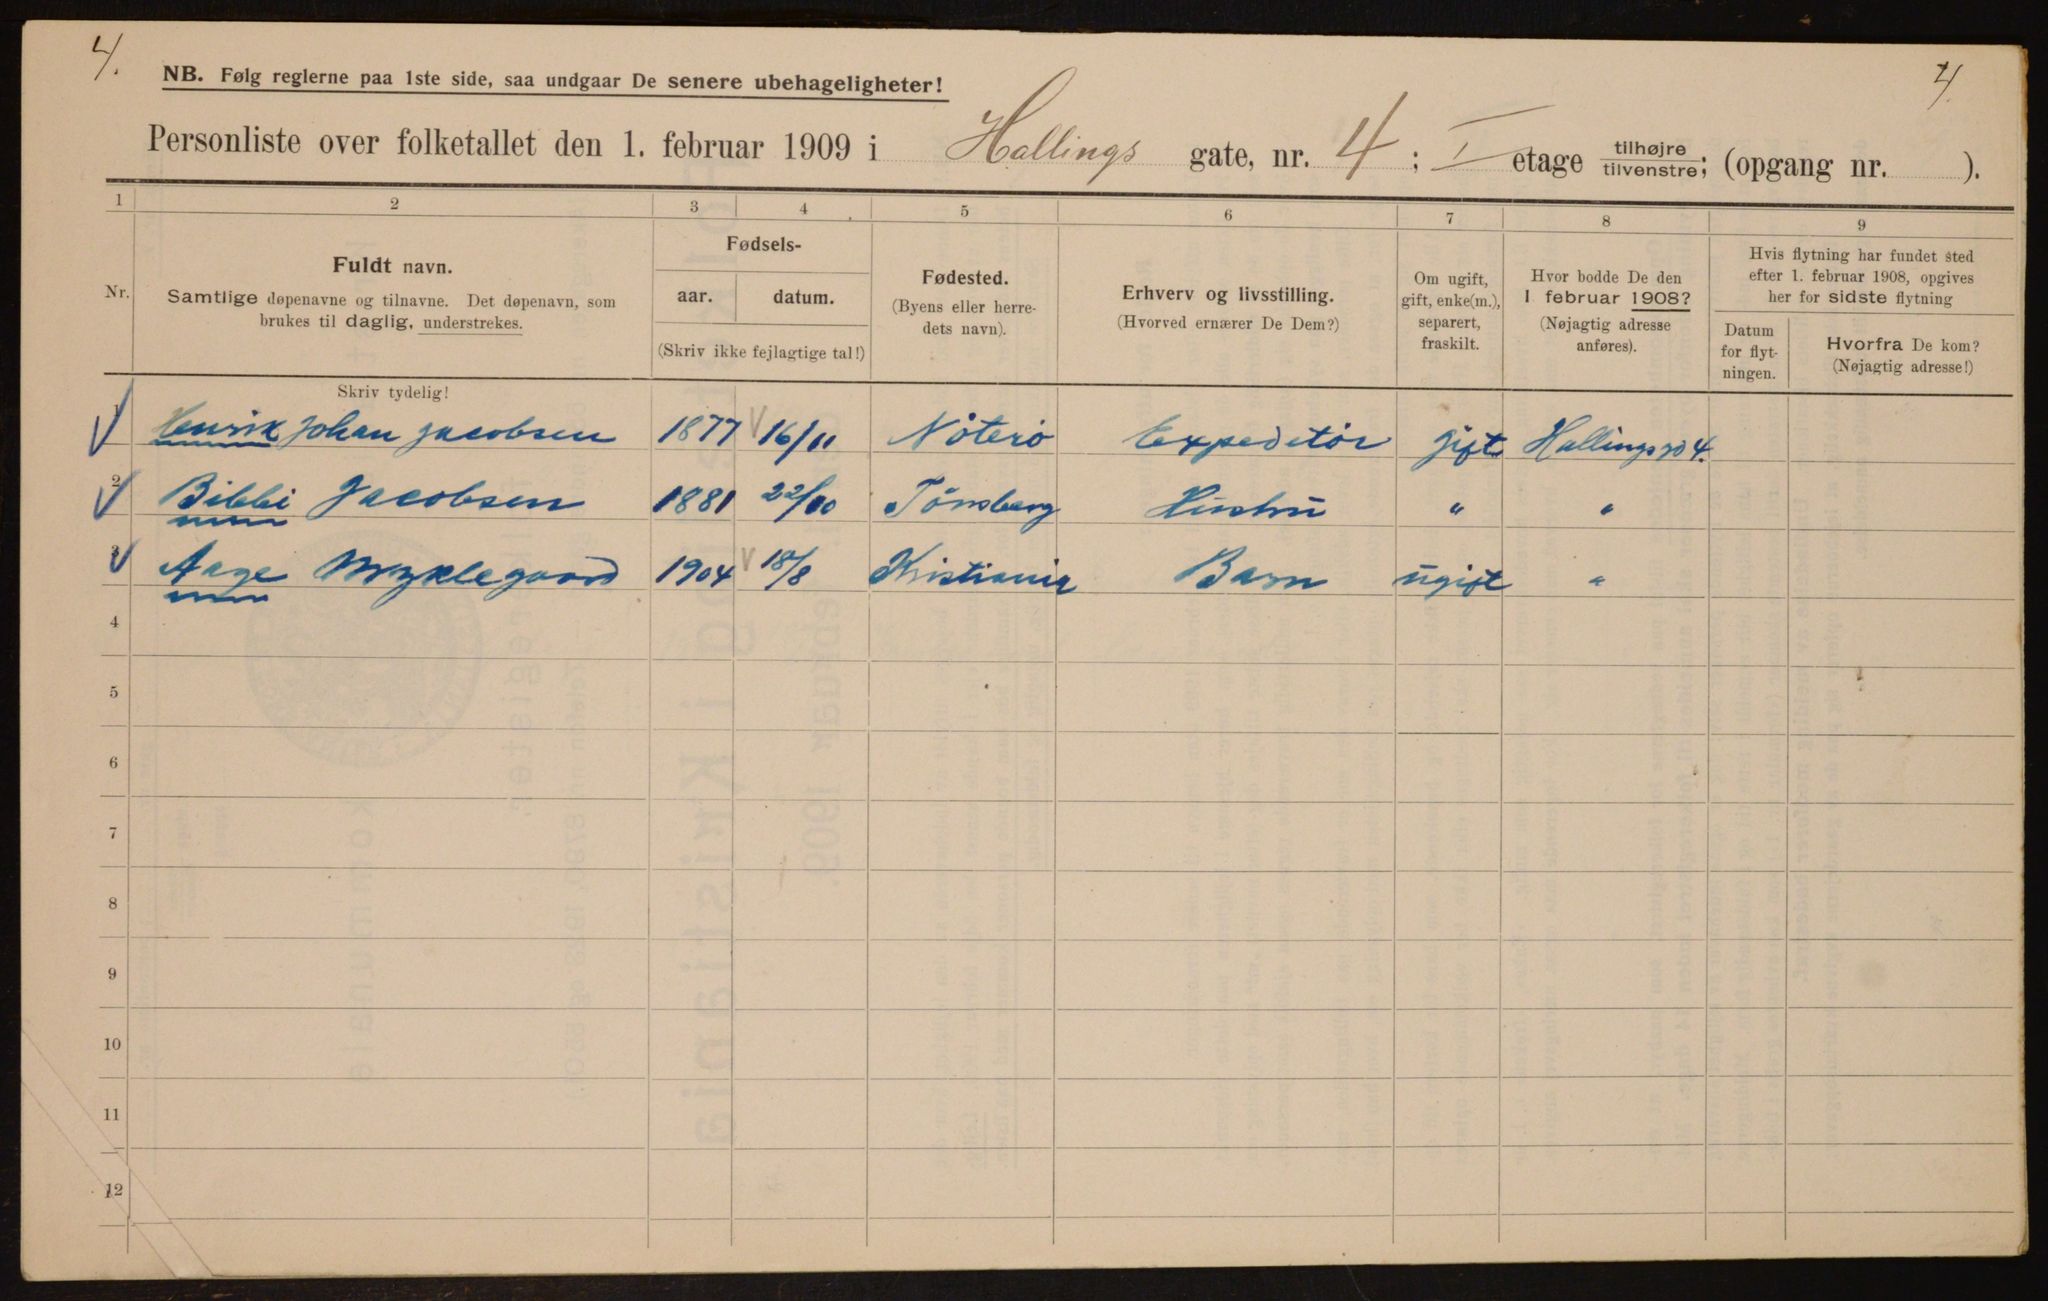 4.
4.
NB. Følg reglerne paa 1ste side, saa undgaar De senere ubehageligheter!
Personliste over folketallet den 1. februar 1909 i Hallings gate, nr. 4; I etage tilhøjre/tilvenstre; (opgang nr. ).
1 2 3 4 5 6 7 8 9
Nr.
Fuldt navn.
Samtlige døpenavne og tilnavne. Det døpenavn, som
brukes til daglig, understrekes.
Fødsels-
aar. datum.
(Skriv ikke fejlagtige tal!)
Fødested.
(Byens eller herre-
dets navn).
Erhverv og livsstilling.
(Hvorved ernærer De Dem?)
Om ugift,
gift, enke(m.),
separert,
fraskilt.
Hvor bodde De den
1 februar 1908?
(Nøjagtig adresse
anføres).
Hvis flytning har fundet sted
efter 1. februar 1908, opgives
her for sidste flytning
Datum
for flyt-
ningen.
Hvorfra De kom?
(Nøjagtig adresse!)
Skriv tydelig!
1 Henrik Johan Jacobsen 1877 16/11 Nøterø Expeditør gift Hallings gd 4.
2 Bibbi Jacobsen 1881 22/10 Tønsberg Hustru " "
3 Aage Myklegaard 1904 18/8 Kristiania Barn ugift "
4
5
6
7
8
9
10
11
12